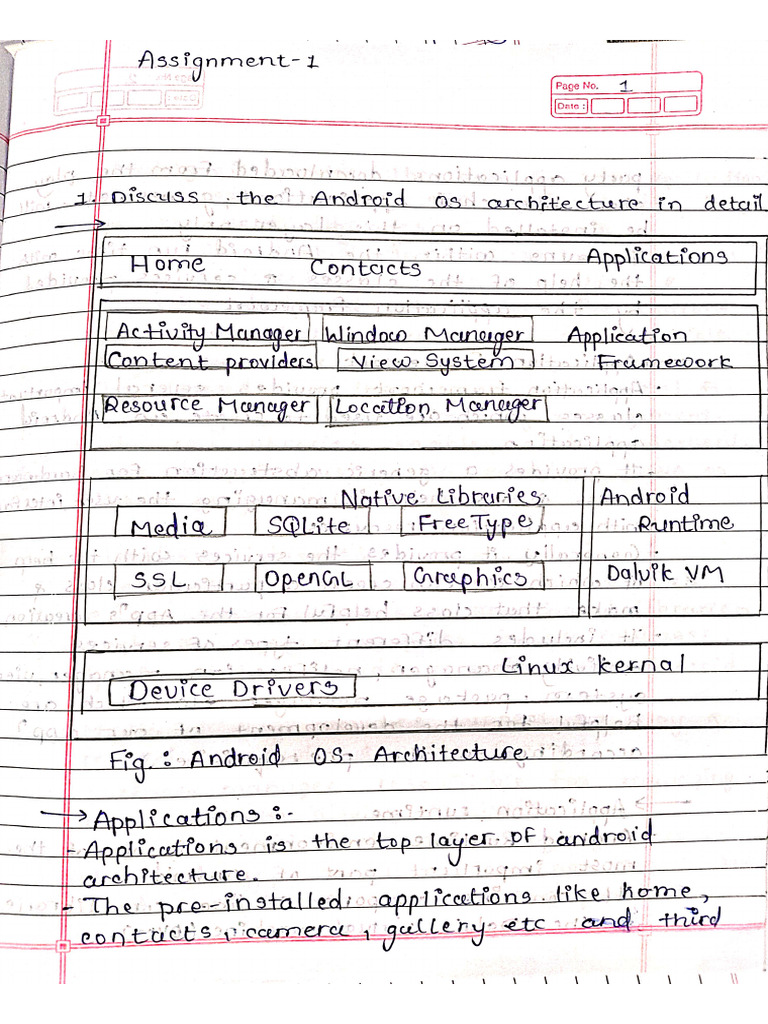 Assignment-1
Page No. 1
Date:
1. Discuss the Android OS architecture in detail
Home Contacts Applications
Activity Manager Window Manager Application
Content providers View System Framework
Resource Manager Location Manager
Native Libraries Android
Media SQLite FreeType Runtime
SSL OpenGL Graphics Dalvik VM
Linux kernal
Device Drivers
Fig : Android OS Architecture
→ Applications :-
- Applications is the top layer of android
architecture.
- The pre-installed applications like home,
contacts, camera, gallery etc and third